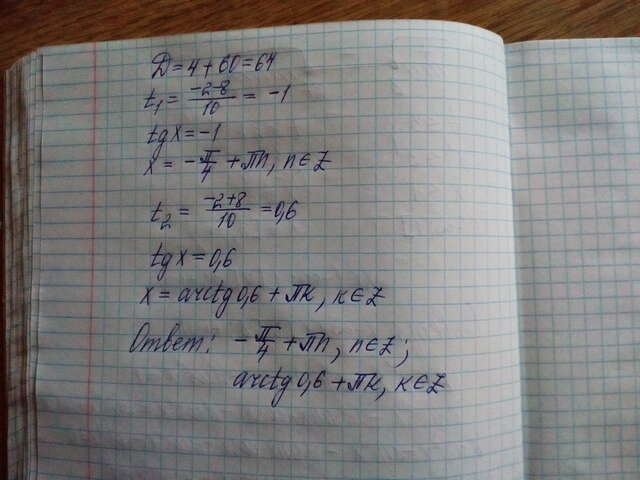 D = 4 + 60 = 64
t₁ = (-2-8)/10 = -1
tg x = -1
x = -π/4 + πn, n ∈ Z
t₂ = (-2+8)/10 = 0,6
tg x = 0,6
x = arctg 0,6 + πк, к ∈ Z
Ответ: -π/4 + πn, n ∈ Z;
arctg 0,6 + πк, к ∈ Z